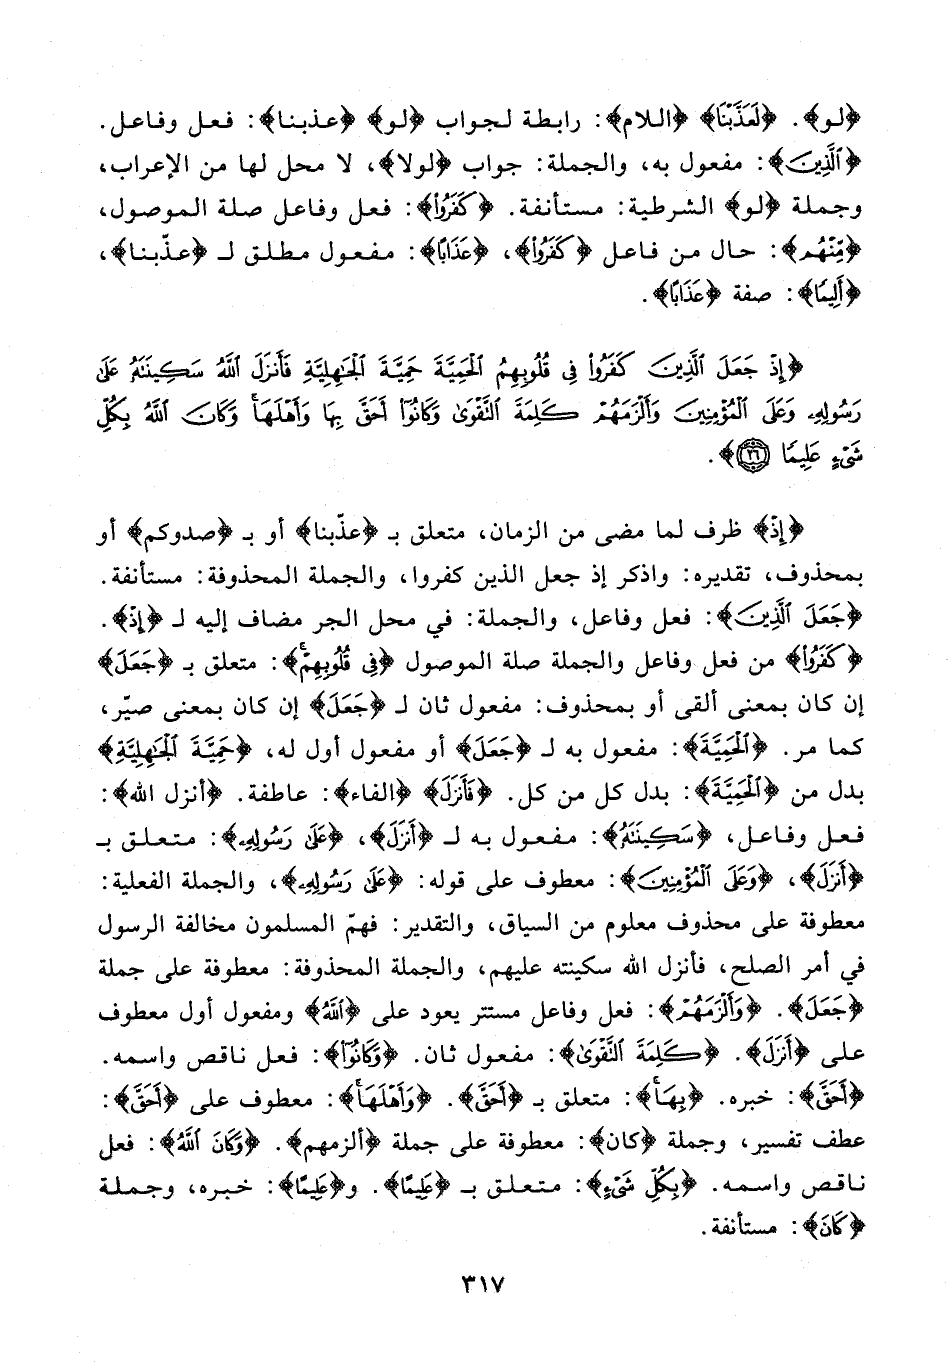 ﴿لو﴾. ﴿لَعَذَّبْنَا﴾ ﴿اللام﴾: رابطة لجواب ﴿لو﴾ ﴿عذبنا﴾: فعل وفاعل.
﴿ٱلَّذِينَ﴾: مفعول به، والجملة: جواب ﴿لولا﴾، لا محل لها من الإعراب،
وجملة ﴿لو﴾ الشرطية: مستأنفة. ﴿كَفَرُوا۟﴾: فعل وفاعل صلة الموصول،
﴿مِنْهُمْ﴾: حال من فاعل ﴿كَفَرُوا۟﴾، ﴿عَذَابًا﴾: مفعول مطلق لـ ﴿عذّبنا﴾،
﴿أَلِيمًا﴾: صفة ﴿عَذَابًا﴾.
﴿إِذْ جَعَلَ ٱلَّذِينَ كَفَرُوا۟ فِى قُلُوبِهِمُ ٱلْحَمِيَّةَ حَمِيَّةَ ٱلْجَٰهِلِيَّةِ فَأَنزَلَ ٱللَّهُ سَكِينَتَهُۥ عَلَىٰ
رَسُولِهِۦ وَعَلَى ٱلْمُؤْمِنِينَ وَأَلْزَمَهُمْ كَلِمَةَ ٱلتَّقْوَىٰ وَكَانُوٓا۟ أَحَقَّ بِهَا وَأَهْلَهَا ۚ وَكَانَ ٱللَّهُ بِكُلِّ
شَىْءٍ عَلِيمًا ٢٦﴾.
﴿إِذْ﴾ ظرف لما مضى من الزمان، متعلق بـ ﴿عذّبنا﴾ أو بـ ﴿صدوكم﴾ أو
بمحذوف، تقديره: واذكر إذ جعل الذين كفروا، والجملة المحذوفة: مستأنفة.
﴿جَعَلَ ٱلَّذِينَ﴾: فعل وفاعل، والجملة: في محل الجر مضاف إليه لـ ﴿إِذْ﴾.
﴿كَفَرُوا۟﴾ من فعل وفاعل والجملة صلة الموصول ﴿فِى قُلُوبِهِمْ ۚ﴾: متعلق بـ ﴿جَعَلَ﴾
إن كان بمعنى ألقى أو بمحذوف: مفعول ثان لـ ﴿جَعَلَ﴾ إن كان بمعنى صيّر،
كما مر. ﴿ٱلْحَمِيَّةَ﴾: مفعول به لـ ﴿جَعَلَ﴾ أو مفعول أول له، ﴿حَمِيَّةَ ٱلْجَٰهِلِيَّةِ﴾
بدل من ﴿ٱلْحَمِيَّةَ﴾: بدل كل من كل. ﴿فَأَنزَلَ﴾ ﴿الفاء﴾: عاطفة. ﴿أنزل الله﴾:
فعل وفاعل، ﴿سَكِينَتَهُۥ﴾: مفعول به لـ ﴿أَنزَلَ﴾، ﴿عَلَىٰ رَسُولِهِۦ﴾: متعلق بـ
﴿أَنزَلَ﴾، ﴿وَعَلَى ٱلْمُؤْمِنِينَ﴾: معطوف على قوله: ﴿عَلَىٰ رَسُولِهِۦ﴾، والجملة الفعلية:
معطوفة على محذوف معلوم من السياق، والتقدير: فهمّ المسلمون مخالفة الرسول
في أمر الصلح، فأنزل الله سكينته عليهم، والجملة المحذوفة: معطوفة على جملة
﴿جَعَلَ﴾. ﴿وَأَلْزَمَهُمْ﴾: فعل وفاعل مستتر يعود على ﴿ٱللَّهُ﴾ ومفعول أول معطوف
على ﴿أَنزَلَ﴾. ﴿كَلِمَةَ ٱلتَّقْوَىٰ﴾: مفعول ثان. ﴿وَكَانُوٓا۟﴾: فعل ناقص واسمه.
﴿أَحَقَّ﴾: خبره. ﴿بِهَا ۚ﴾: متعلق بـ ﴿أَحَقَّ﴾. ﴿وَأَهْلَهَا ۚ﴾: معطوف على ﴿أَحَقَّ﴾:
عطف تفسير، وجملة ﴿كان﴾: معطوفة على جملة ﴿ألزمهم﴾. ﴿وَكَانَ ٱللَّهُ﴾: فعل
ناقص واسمه. ﴿بِكُلِّ شَىْءٍ﴾: متعلق بـ ﴿عَلِيمًا﴾. و﴿عَلِيمًا﴾: خبره، وجملة
﴿كَانَ﴾: مستأنفة.
٣١٧